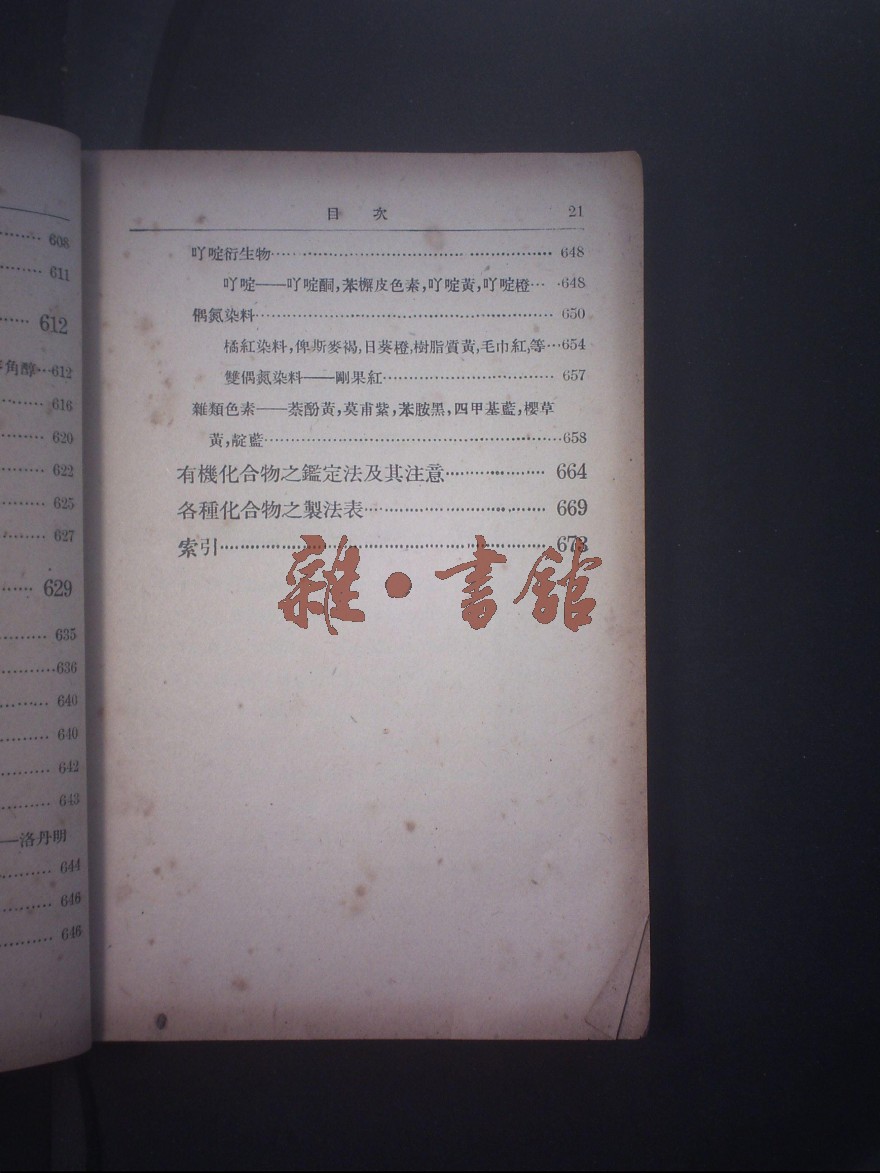 608
611
612
角醇…612
616
620
622
625
627
629
635
636
640
640
642
643
—洛丹明
644
646
646
目 次 21
吖啶衍生物 648
吖啶——吖啶酮,苯檞皮色素,吖啶黃,吖啶橙 648
偶氮染料 650
橘紅染料,俾斯麥褐,日葵橙,樹脂質黃,毛巾紅,等 654
雙偶氮染料——剛果紅 657
雜類色素——萘酚黃,莫甫紫,苯胺黑,四甲基藍,櫻草
黃,靛藍 658
有機化合物之鑑定法及其注意 664
各種化合物之製法表 669
索引 673
雜·書館